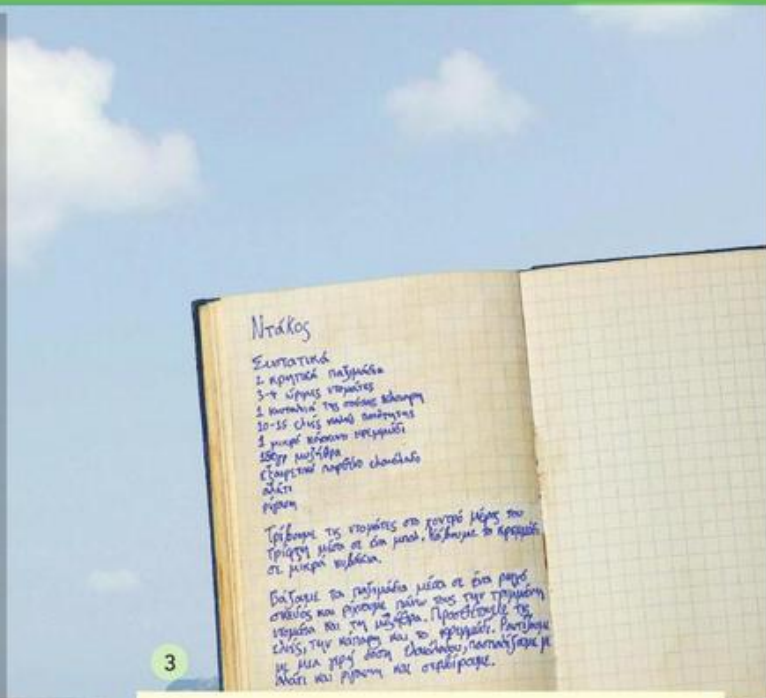 Ντάκος
Συστατικά
2 κρητικά παξιμάδια
3-4 ώριμες ντομάτες
1 κουταλιά της σούπας κάππαρη
10-15 ελιές καλής ποιότητας
1 μικρό κόκκινο κρεμμύδι
150γρ μυζήθρα
εξαιρετικό παρθένο ελαιόλαδο
αλάτι
ρίγανη
Τρίβουμε τις ντομάτες στο χοντρό μέρος του
τρίφτη μέσα σε ένα μπολ. Κόβουμε το κρεμμύδι
σε μικρά κυβάκια.
Βάζουμε τα παξιμάδια μέσα σε ένα ρηχό
σκεύος και ρίχνουμε πάνω τους την τριμμένη
ντομάτα και τη μυζήθρα. Προσθέτουμε τις
ελιές, την κάπαρη και το κρεμμύδι. Ραντίζουμε
με μια γερή δόση ελαιολάδου, πασπαλίζουμε με
αλάτι και ρίγανη και σερβίρουμε.
3